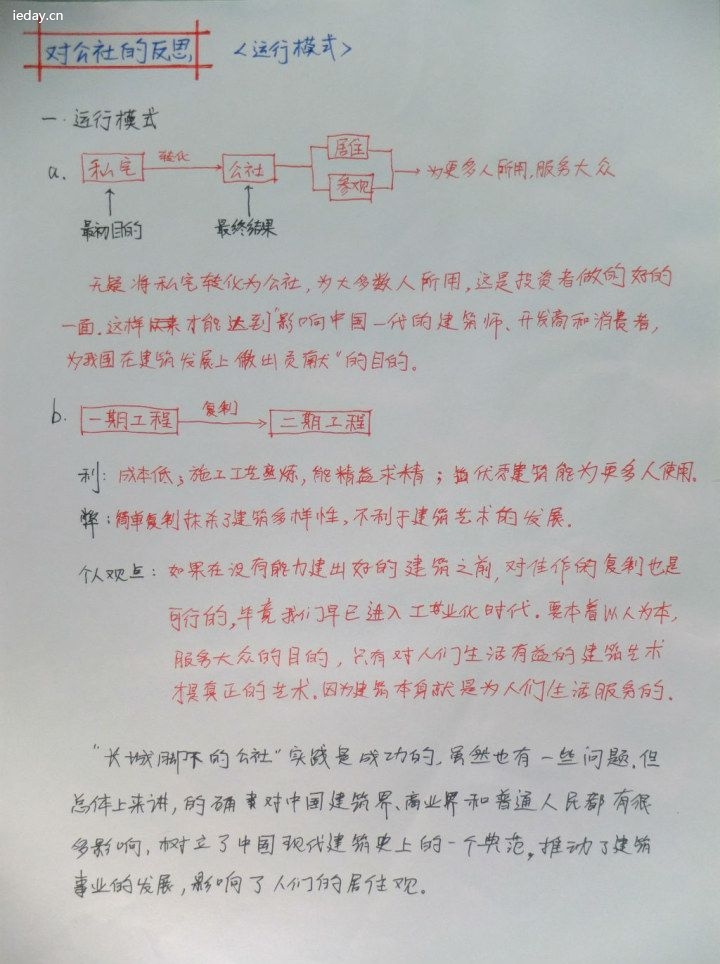 ieday.cn
对公社的反思 <运行模式>
一.运行模式
a. 私宅 转化 公社 居住 参观 为更多人所用,服务大众
最初目的 最终结果
无疑将私宅转化为公社,为大多数人所用,这是投资者做的好的
一面.这样才能达到"影响中国一代的建筑师、开发商和消费者,
为我国在建筑发展上做出贡献"的目的。
b. 一期工程 复制 二期工程
利:成本低;施工工艺熟炼,能精益求精;优秀建筑能为更多人使用.
弊:简单复制抹杀了建筑多样性,不利于建筑艺术的发展.
个人观点:如果在没有能力建出好的建筑之前,对佳作的复制也是
可行的,毕竟我们早已进入工业化时代.要本着以人为本,
服务大众的目的,只有对人们生活有益的建筑艺术
才是真正的艺术.因为建筑本身就是为人们生活服务的.
"长城脚下的公社"实践是成功的,虽然也有一些问题.但
总体上来讲,的确对中国建筑界、商业界和普通人民都有很
多影响,树立了中国现代建筑史上的一个典范。推动了建筑
事业的发展,影响了人们的居住观。